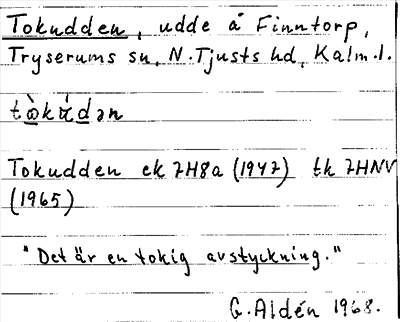 Tokudden, udde å Finntorp,
Tryserums sn, N. Tjusts hd, Kalm. l.
Tokudden ek 7H8a (1947) tk 7HNV
(1965)
"Det är en tokig avstyckning."
G. Aldén 1968.